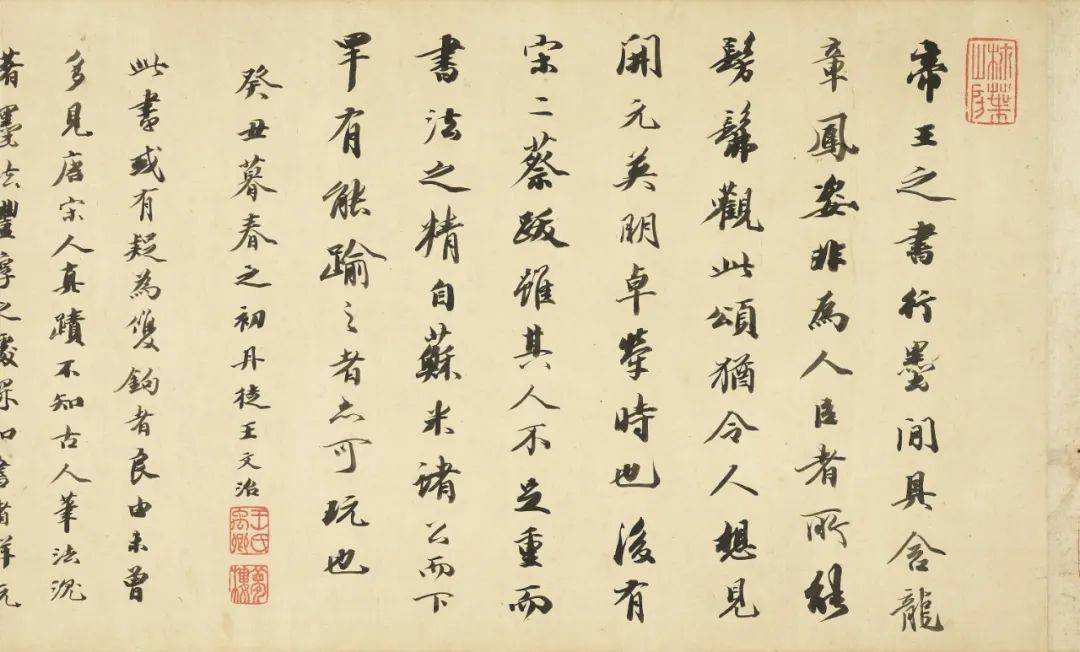 柿葉山房
帝王之書行墨間具含龍
章鳳姿非為人臣者所能
髣髴觀此頌猶令人想見
開元英明卓犖時也後有
宋二蔡跋雖其人不足重而
書法之精自蘇米諸公而下
罕有能踰之者亦可玩也
癸丑暮春之初丹徒王文治
王氏禹卿
夢樓
此書或有疑為雙鉤者良由未曾
多見唐宋人真蹟不知古人筆法沉
著墨法豐厚之處知書者詳玩